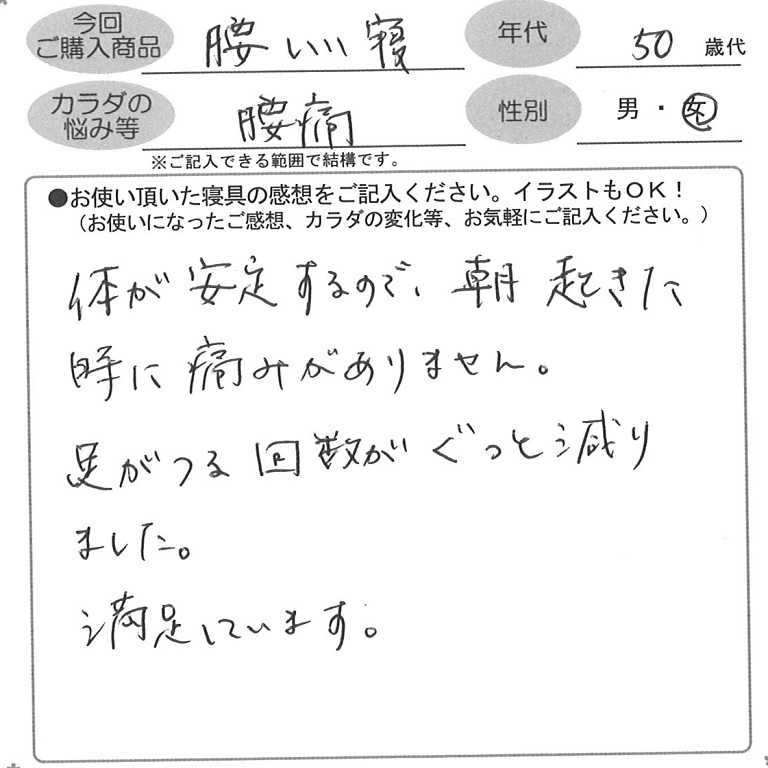 今回
ご購入商品 腰いい寝
年代 50 歳代
カラダの
悩み等 腰痛
性別 男・女
※ご記入できる範囲で結構です。
●お使い頂いた寝具の感想をご記入ください。イラストもOK！
（お使いになったご感想、カラダの変化等、お気軽にご記入ください。）
体が安定するので、朝起きた
時に痛みがありません。
足がつる回数がぐっと減り
ました。
満足しています。